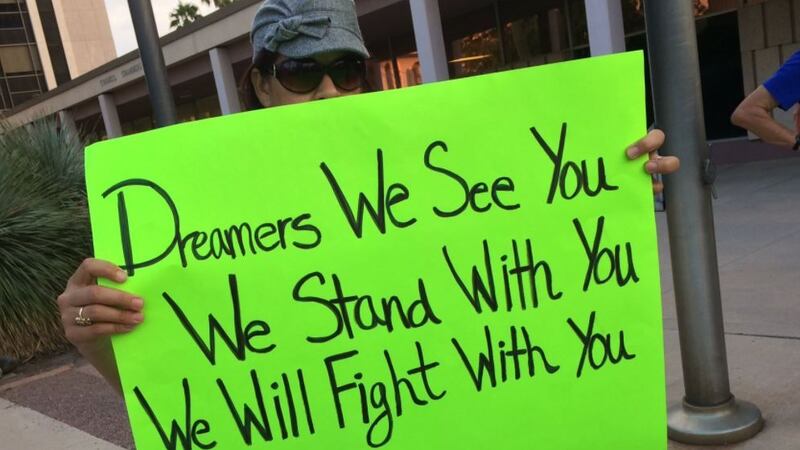 Dreamers We See You
We Stand With You
We Will Fight With You